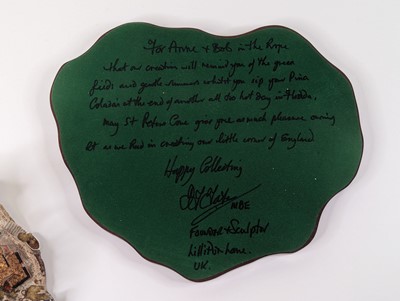 For Anne + Bob in the Rope
that our creation will remind you of the green
fields and gentle summers whilst you sip your Pina
Coladas at the end of another all too hot day in Florida.
May St Peters Cove give you as much pleasure owning
it as we had in creating our little corner of England
Happy Collecting
MBE
Founder & Sculptor
Lilliput Lane.
UK.